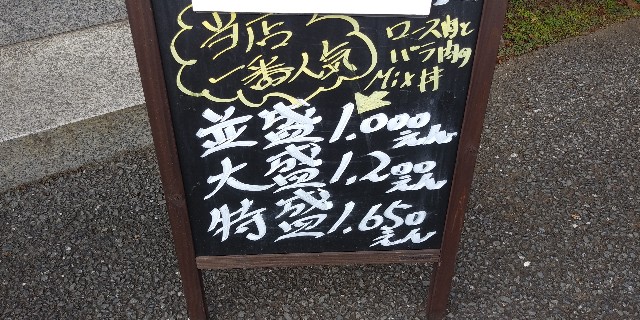 当店
一番人気
ロース肉と
バラ肉の
Mix丼
並盛 1.000えん
大盛 1.200えん
特盛 1.650えん